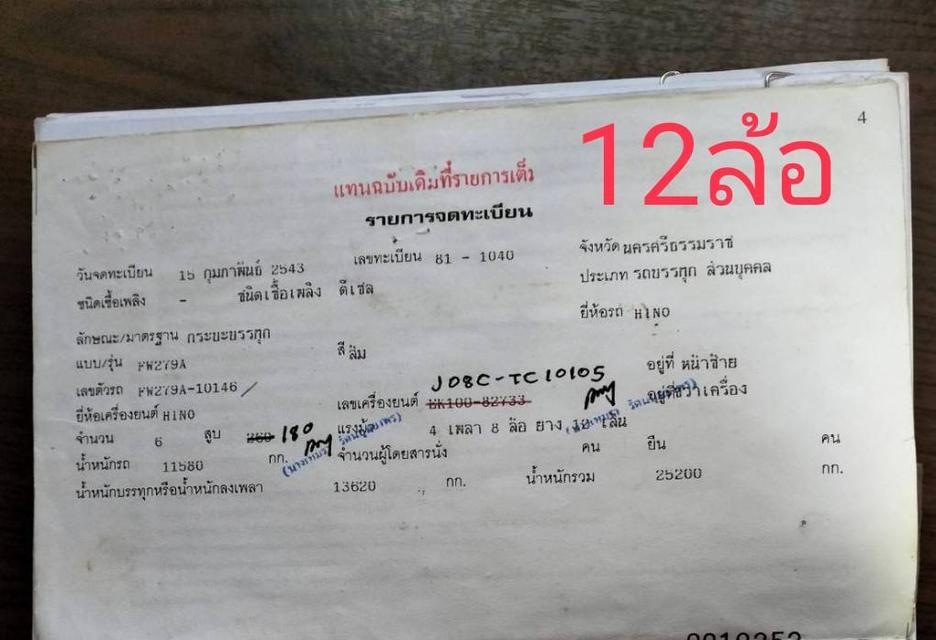 4
12ล้อ
แทนฉบับเดิมที่รายการเต็ม
รายการจดทะเบียน
วันจดทะเบียน 15 กุมภาพันธ์ 2543 เลขทะเบียน 81 - 1040 จังหวัด นครศรีธรรมราช
ชนิดเชื้อเพลิง - ชนิดเชื้อเพลิง ดีเซล ประเภท รถบรรทุก ส่วนบุคคล
ยี่ห้อรถ HINO
ลักษณะ/มาตรฐาน กระบะบรรทุก
แบบ/รุ่น FW279A สี ส้ม อยู่ที่ หน้าซ้าย
J08C-TC10105
เลขตัวรถ FW279A-10146 / เลขเครื่องยนต์ EK100-82733 อยู่ที่ขวาเครื่อง
ยี่ห้อเครื่องยนต์ HINO
จำนวน 6 สูบ 260 180 แรงม้า 4 เพลา 8 ล้อ ยาง 12 เส้น
น้ำหนักรถ 11580 กก. จำนวนผู้โดยสารนั่ง คน ยืน คน
น้ำหนักบรรทุกหรือน้ำหนักลงเพลา 13620 กก. น้ำหนักรวม 25200 กก.